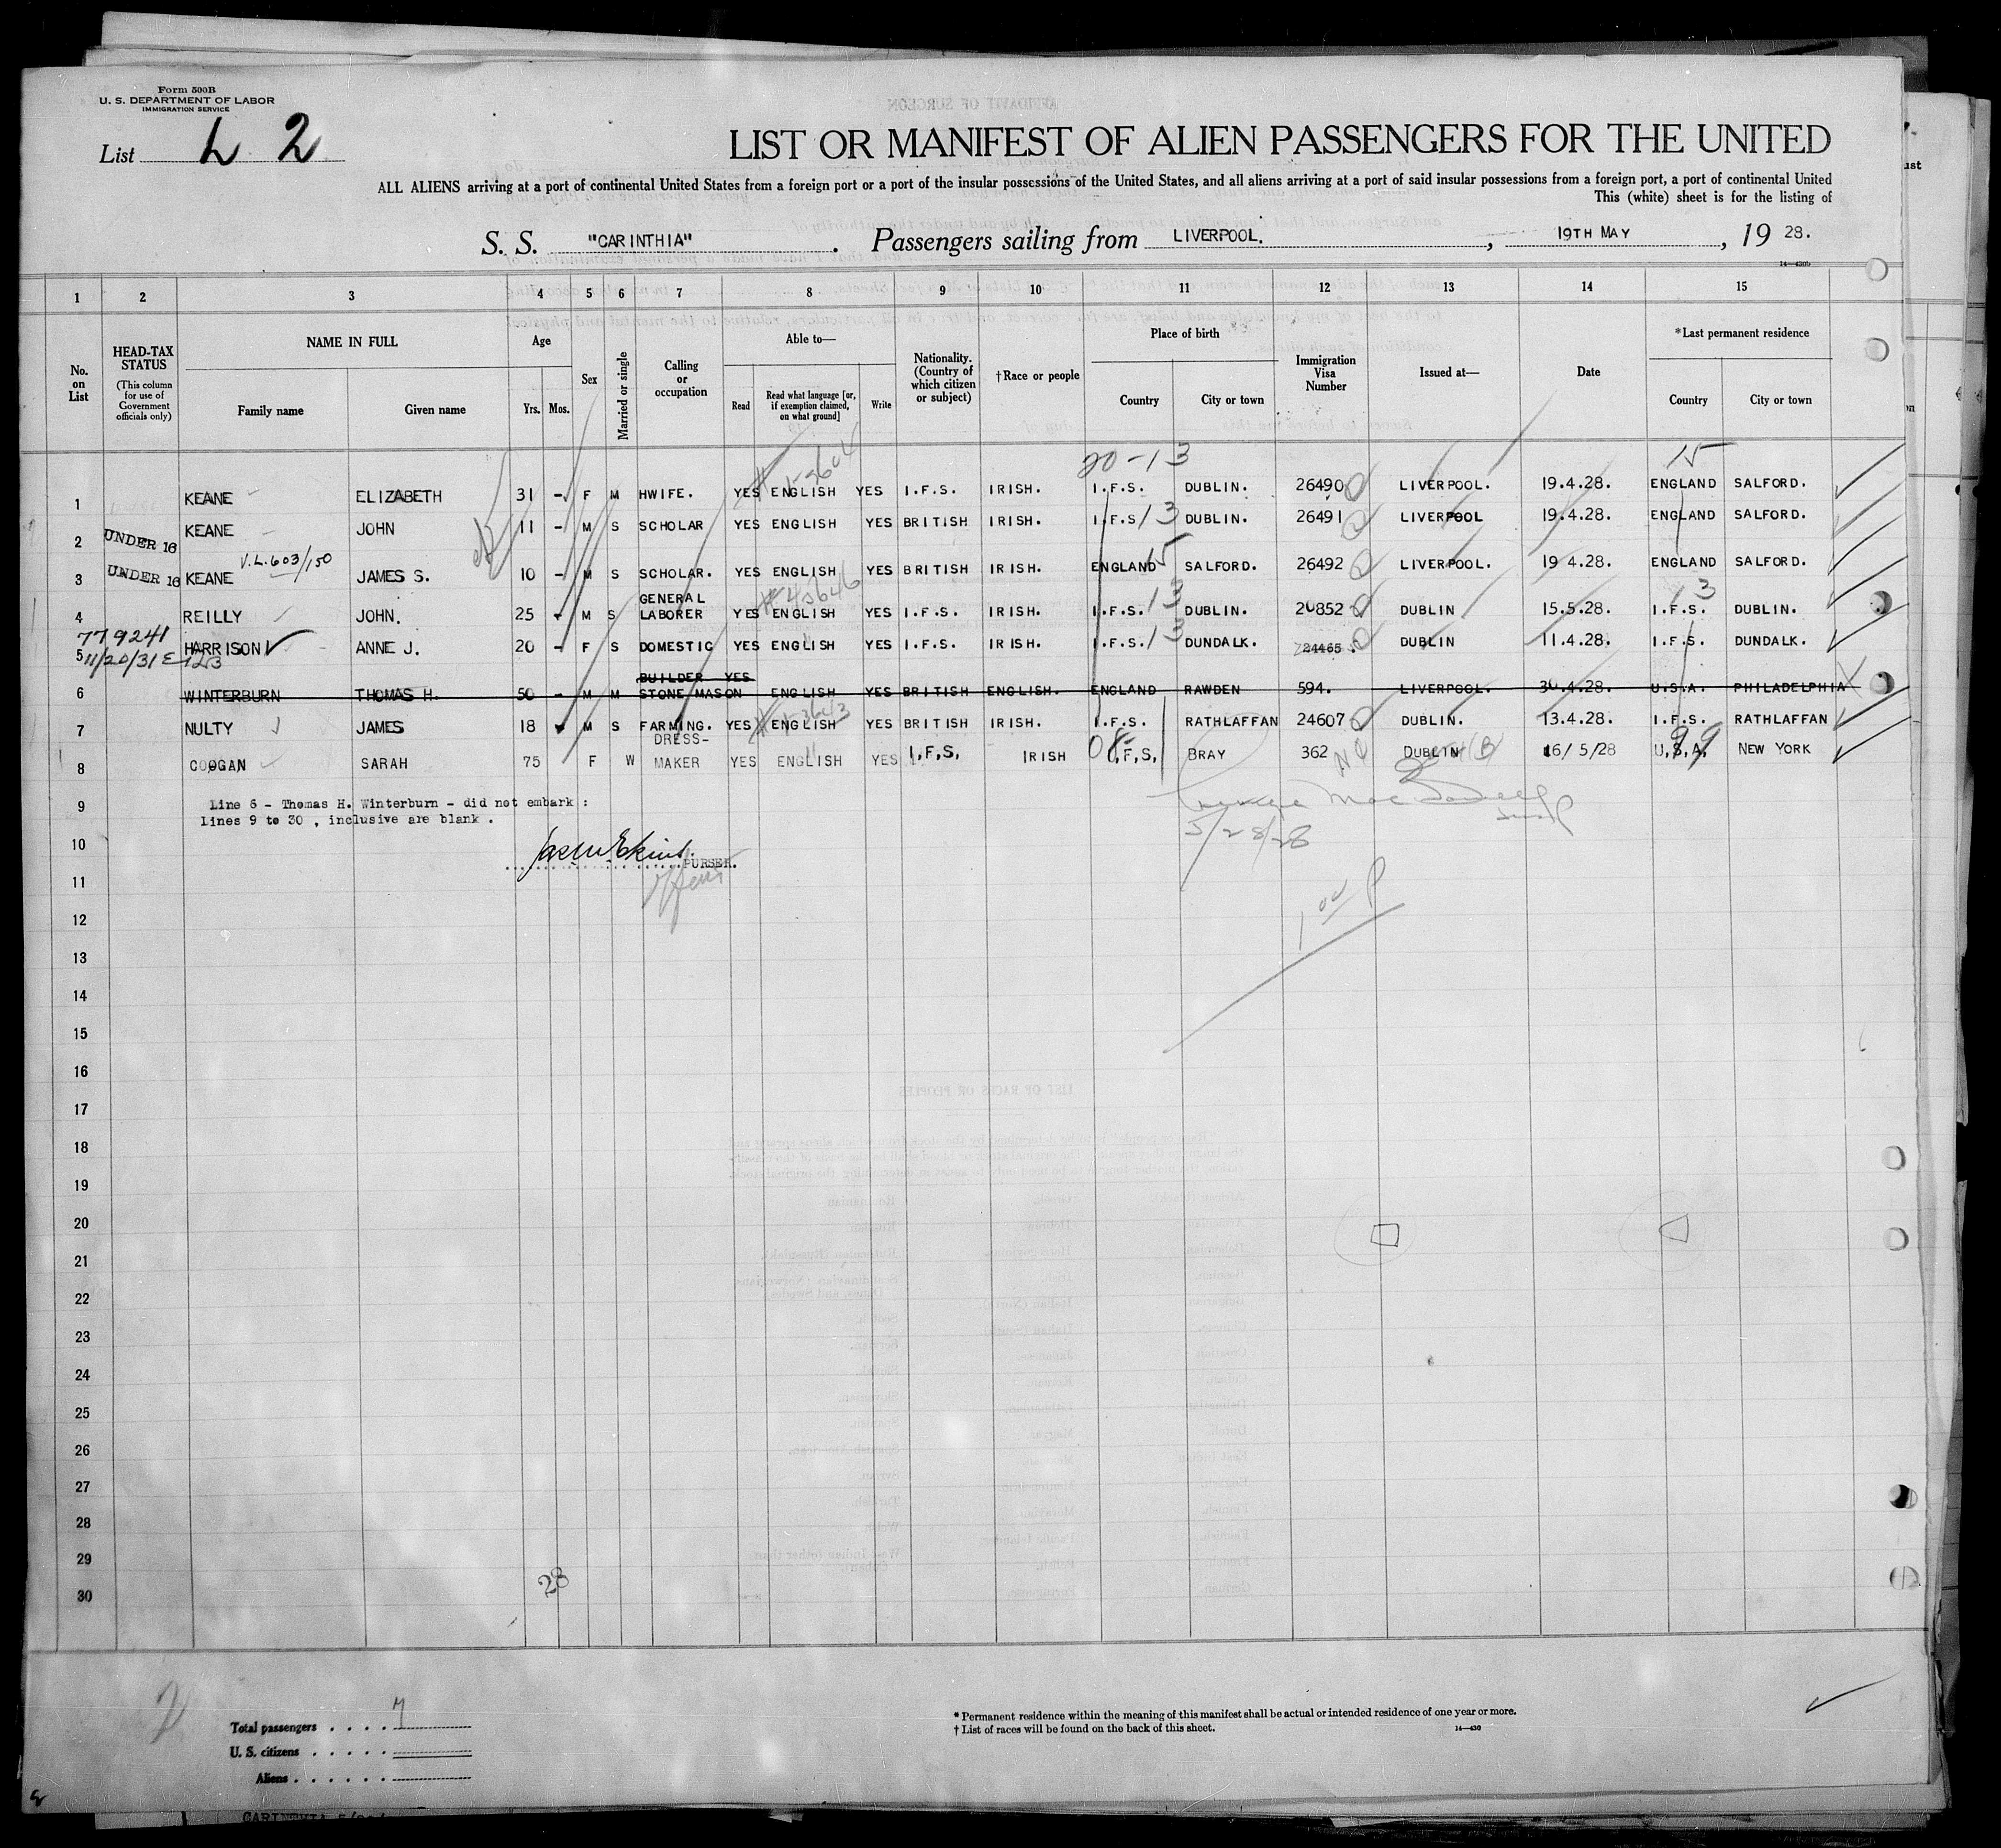 Form 500B
U. S. DEPARTMENT OF LABOR
IMMIGRATION SERVICE
List L 2
LIST OR MANIFEST OF ALIEN PASSENGERS FOR THE UNITED
ALL ALIENS arriving at a port of continental United States from a foreign port or a port of the insular possessions of the United States, and all aliens arriving at a port of said insular possessions from a foreign port, a port of continental United
This (white) sheet is for the listing of
S. S. "CARINTHIA" . Passengers sailing from LIVERPOOL. , 19TH MAY , 19 28.
1 2 3 4 5 6 7 8 9 10 11 12 13 14 15
No. on List
HEAD-TAX STATUS (This column for use of Government officials only)
NAME IN FULL Family name Given name
Age Yrs. Mos.
Sex
Married or single
Calling or occupation
Able to— Read Read what language [or, if exemption claimed, on what ground] Write
Nationality. (Country of which citizen or subject)
†Race or people
Place of birth Country City or town
Immigration Visa Number
Issued at—
Date
*Last permanent residence Country City or town
20-13 15
1 KEANE ELIZABETH 31 - F M HWIFE. YES ENGLISH YES I.F.S. IRISH. I.F.S. DUBLIN. 26490 LIVERPOOL. 19.4.28. ENGLAND SALFORD.
2 UNDER 16 KEANE JOHN 11 - M S SCHOLAR YES ENGLISH YES BRITISH IRISH. I.F.S 13 DUBLIN. 26491 LIVERPOOL 19.4.28. ENGLAND SALFORD.
V.L.603/150 15
3 UNDER 16 KEANE JAMES S. 10 - M S SCHOLAR. YES ENGLISH YES BRITISH IRISH. ENGLAND SALFORD. 26492 LIVERPOOL. 19 4.28. ENGLAND SALFORD.
4 REILLY JOHN. 25 - M S GENERAL LABORER YES ENGLISH YES I.F.S. IRISH. I.F.S. 13 DUBLIN. 20852 DUBLIN 15.5.28. I.F.S. 13 DUBLIN.
779241
5 11/20/31 HARRISON ANNE J. 20 - F S DOMESTIC YES ENGLISH YES I.F.S. IRISH. I.F.S. 13 DUNDALK. 24465. DUBLIN 11.4.28. I.F.S. DUNDALK.
6 WINTERBURN THOMAS H. 50 - M M BUILDER STONE MASON YES ENGLISH YES BRITISH ENGLISH. ENGLAND RAWDEN 594. LIVERPOOL. 30.4.28. U.S.A. PHILADELPHIA
7 NULTY JAMES 18 M S FARMING. YES ENGLISH YES BRITISH IRISH. I.F.S. RATHLAFFAN 24607 DUBLIN. 13.4.28. I.F.S. RATHLAFFAN
8 COOGAN SARAH 75 F W DRESS-MAKER YES ENGLISH YES I.F.S, IRISH I.F,S, BRAY 362 DUBLIN 16/5/28 U.S.A. 99 NEW YORK
9 Line 6 - Thomas H. Winterburn - did not embark :
Lines 9 to 30 , inclusive are blank .
5/28/28
10 PURSER.
11
12
13
14
15
16
17
18
19
20
21
22
23
24
25
26
27
28
29
30
28
Total passengers . . . . 7
U. S. citizens . . . . .
Aliens . . . . . .
* Permanent residence within the meaning of this manifest shall be actual or intended residence of one year or more.
† List of races will be found on the back of this sheet. 14—430